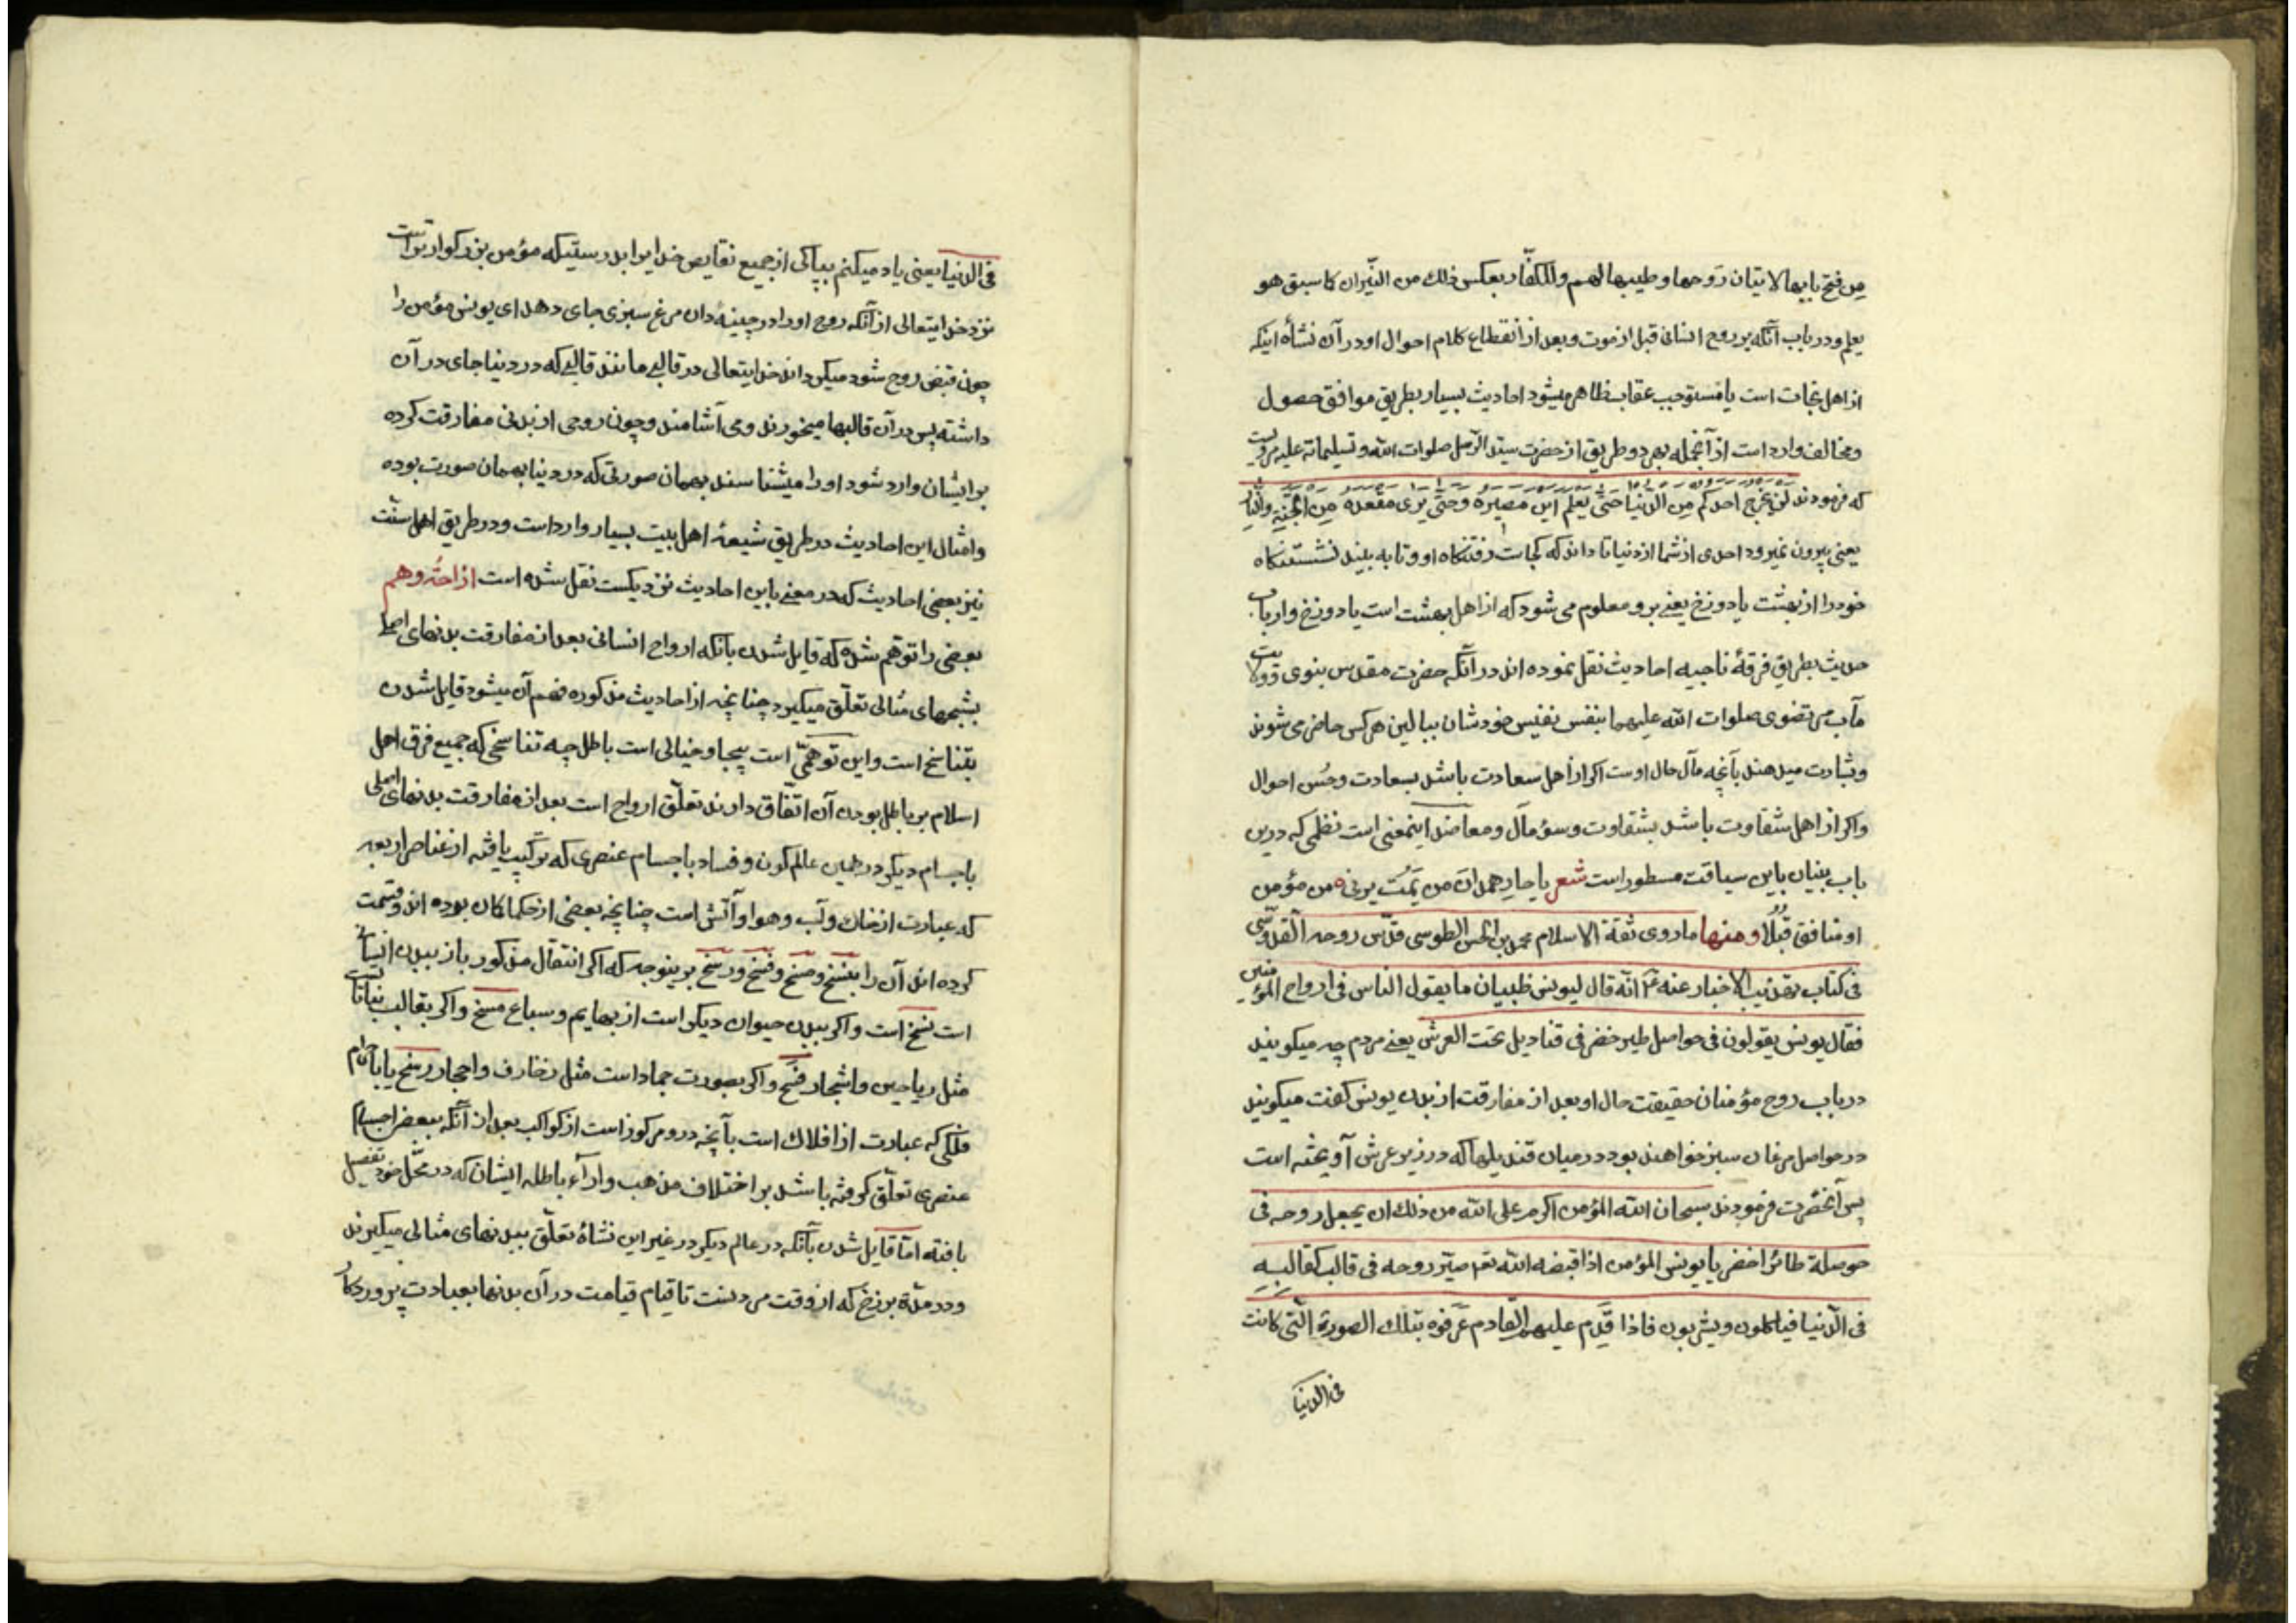 مِن فتح بابها لاتیان رَوحها وطیبها لهم وللکفّار بعکس ذلك من النّیران کما سبق هو
یعلم ودر باب آنکه بر روح انسانی قبل از موت و بعد از انقطاع کلام احوال او در آن نشأه اینکه
از اهل نجات است یا مستوجب عقاب ظاهر میشود احادیث بسیار بطریق موافق حصول
ومخالف وارد است از آنجمله بهر دو طریق از حضرت سیّد الرّسل صلوات الله وتسلیماته علیه مرویست
که فرمودند لن یخرج احدکم مِن الدّنیا حَتّی یَعلَم این مَصیرُه وحَتّی یَری مَقعَدَه مِنَ الجَنّةِ والنّارِ
یعنی بیرون نمیرود احدی از شما از دنیا تا داند که کجاست رفتنکاه او وتا به بیند نشستنکاه
خود را از بهشت یا دوزخ یعنی برو معلوم می شود که از اهل بهشت است یا دوزخ وارباب
حدیث بطریق فرقهٔ ناجیه احادیث نقل نموده اند در آنکه حضرت مقدس نبوی وولایت
مآب مرتضوی صلوات الله علیهما بنفس نفیس خودشان ببالین هر کس حاضر می شوند
وبشارت میدهند بآنچه مآل حال اوست اکر از اهل سعادت باشد بسعادت وحُسن احوال
واکر از اهل شقاوت باشد بشقاوت وسوء مآل ومعاضد اینمعنی است نظمی که درین
باب بنیان باین سیاقت مسطور است شعر یا حارِ همدانَ من یَمُت یرنی ٥ من مؤمن
او منافق قُبُلًا ومنها ما روی ثقة الاسلام محمد بن الحسن الطوسی قدّس روحه القدّوسی
فی کتاب تهذیب الاخبار عنه ع انّه قال لیونس ظبیان ما یقول الناس فی ارواح المؤمنین
فقال یونس یقولون فی حواصل طیر خضر فی قنادیل تحت العرش یعنی مردم چه میکویند
در باب روح مؤمنان حقیقت حال او بعد از مفارقت از بدن یونس کفت میکویند
در حواصل مرغان سبز خواهند بود در میان قندیلها که در زیر عرش آویخته است
پس آنحضرت فرمودند سبحان الله المؤمن اکرم علی الله من ذلك ان یجعل روحه فی
حوصلة طائر اخضر یا یونس المؤمن اذا قبضه الله تع صیّر روحه فی قالب کقالبهِ
فی الدّنیا فیاکلون ویشربون فاذا قَدِم علیهم القادم عَرَفوه بتلك الصورة الّتی کانت
فی الدنیا
فی الدنیا یعنی یاد میکنم بپاکی از جمیع نقایص خدایرا بدرستیکه مؤمن بزرکوارتر است
نزد خدایتعالی از آنکه روح او را در چینه دان مرغ سبزی جای دهد ای یونس مؤمن را
چون قبض روح شود میکرداند خدایتعالی در قالبی مانند قالبی که در دنیا جای در آن
داشته پس در آن قالبها میخورند ومی آشامند وچون روحی از بدنی مفارقت کرده
بر ایشان وارد شود او را میشناسند بهمان صورتی که در دنیا بهمان صورت بوده
وامثال این احادیث در طریق شیعهٔ اهل بیت بسیار وارد است ودر طریق اهل سنّت
نیز بعضی احادیث که در معنی باین احادیث نزدیکست نقل شده است ازاحهٔ وهم
بعضی را توهّم شده که قایل شدن بآنکه ارواح انسانی بعد از مفارقت بدنهای اصلی
بشبحهای مثالی تعلّق میکیرد چنانچه از احادیث مذکوره فهم آن میشود قایل شدن
بتناسخ است واین توهّمی است بیجا وخیالی است باطل چه تناسخی که جمیع فرق اهل
اسلام بر باطل بودن آن اتّفاق دارند تعلّق ارواح است بعد از مفارقت بدنهای اصلی
باجسام دیکر در همین عالم کون وفساد باجسام عنصری که ترکیب یافته از عناصر اربعه
که عبارت از خاك وآب وهوا وآتش است چنانچه بعضی از حکما کان بوده اند وقسمت
کرده اند آن را بنسخ ومسخ وفسخ ورسخ برینوجه که اکر انتقال مذکور باز ببدن انسانی
است نسخ است واکر ببدن حیوان دیکر است از بهایم وسباع مسخ واکر بقالب نباتاتست
مثل ریاحین واشجار فسخ واکر بصورت جماد است مثل زخارف واحجار رسخ یا باجرام
فلکی که عبارت از افلاك است بآنچه درو مرکوز است از کواکب بعد از آنکه ببعض اجسام
عنصری تعلّق کرفته باشد بر اختلاف مذهب وآراء باطله ایشان که در محلّ خود تفصیل
یافته امّا قایل شدن بآنکه در عالم دیکر در غیر این نشأه تعلّق ببدنهای مثالی میکیرند
ودر مدّة برزخ که از وقت مردنست تا قیام قیامت در آن بدنها بعبادت پروردکار